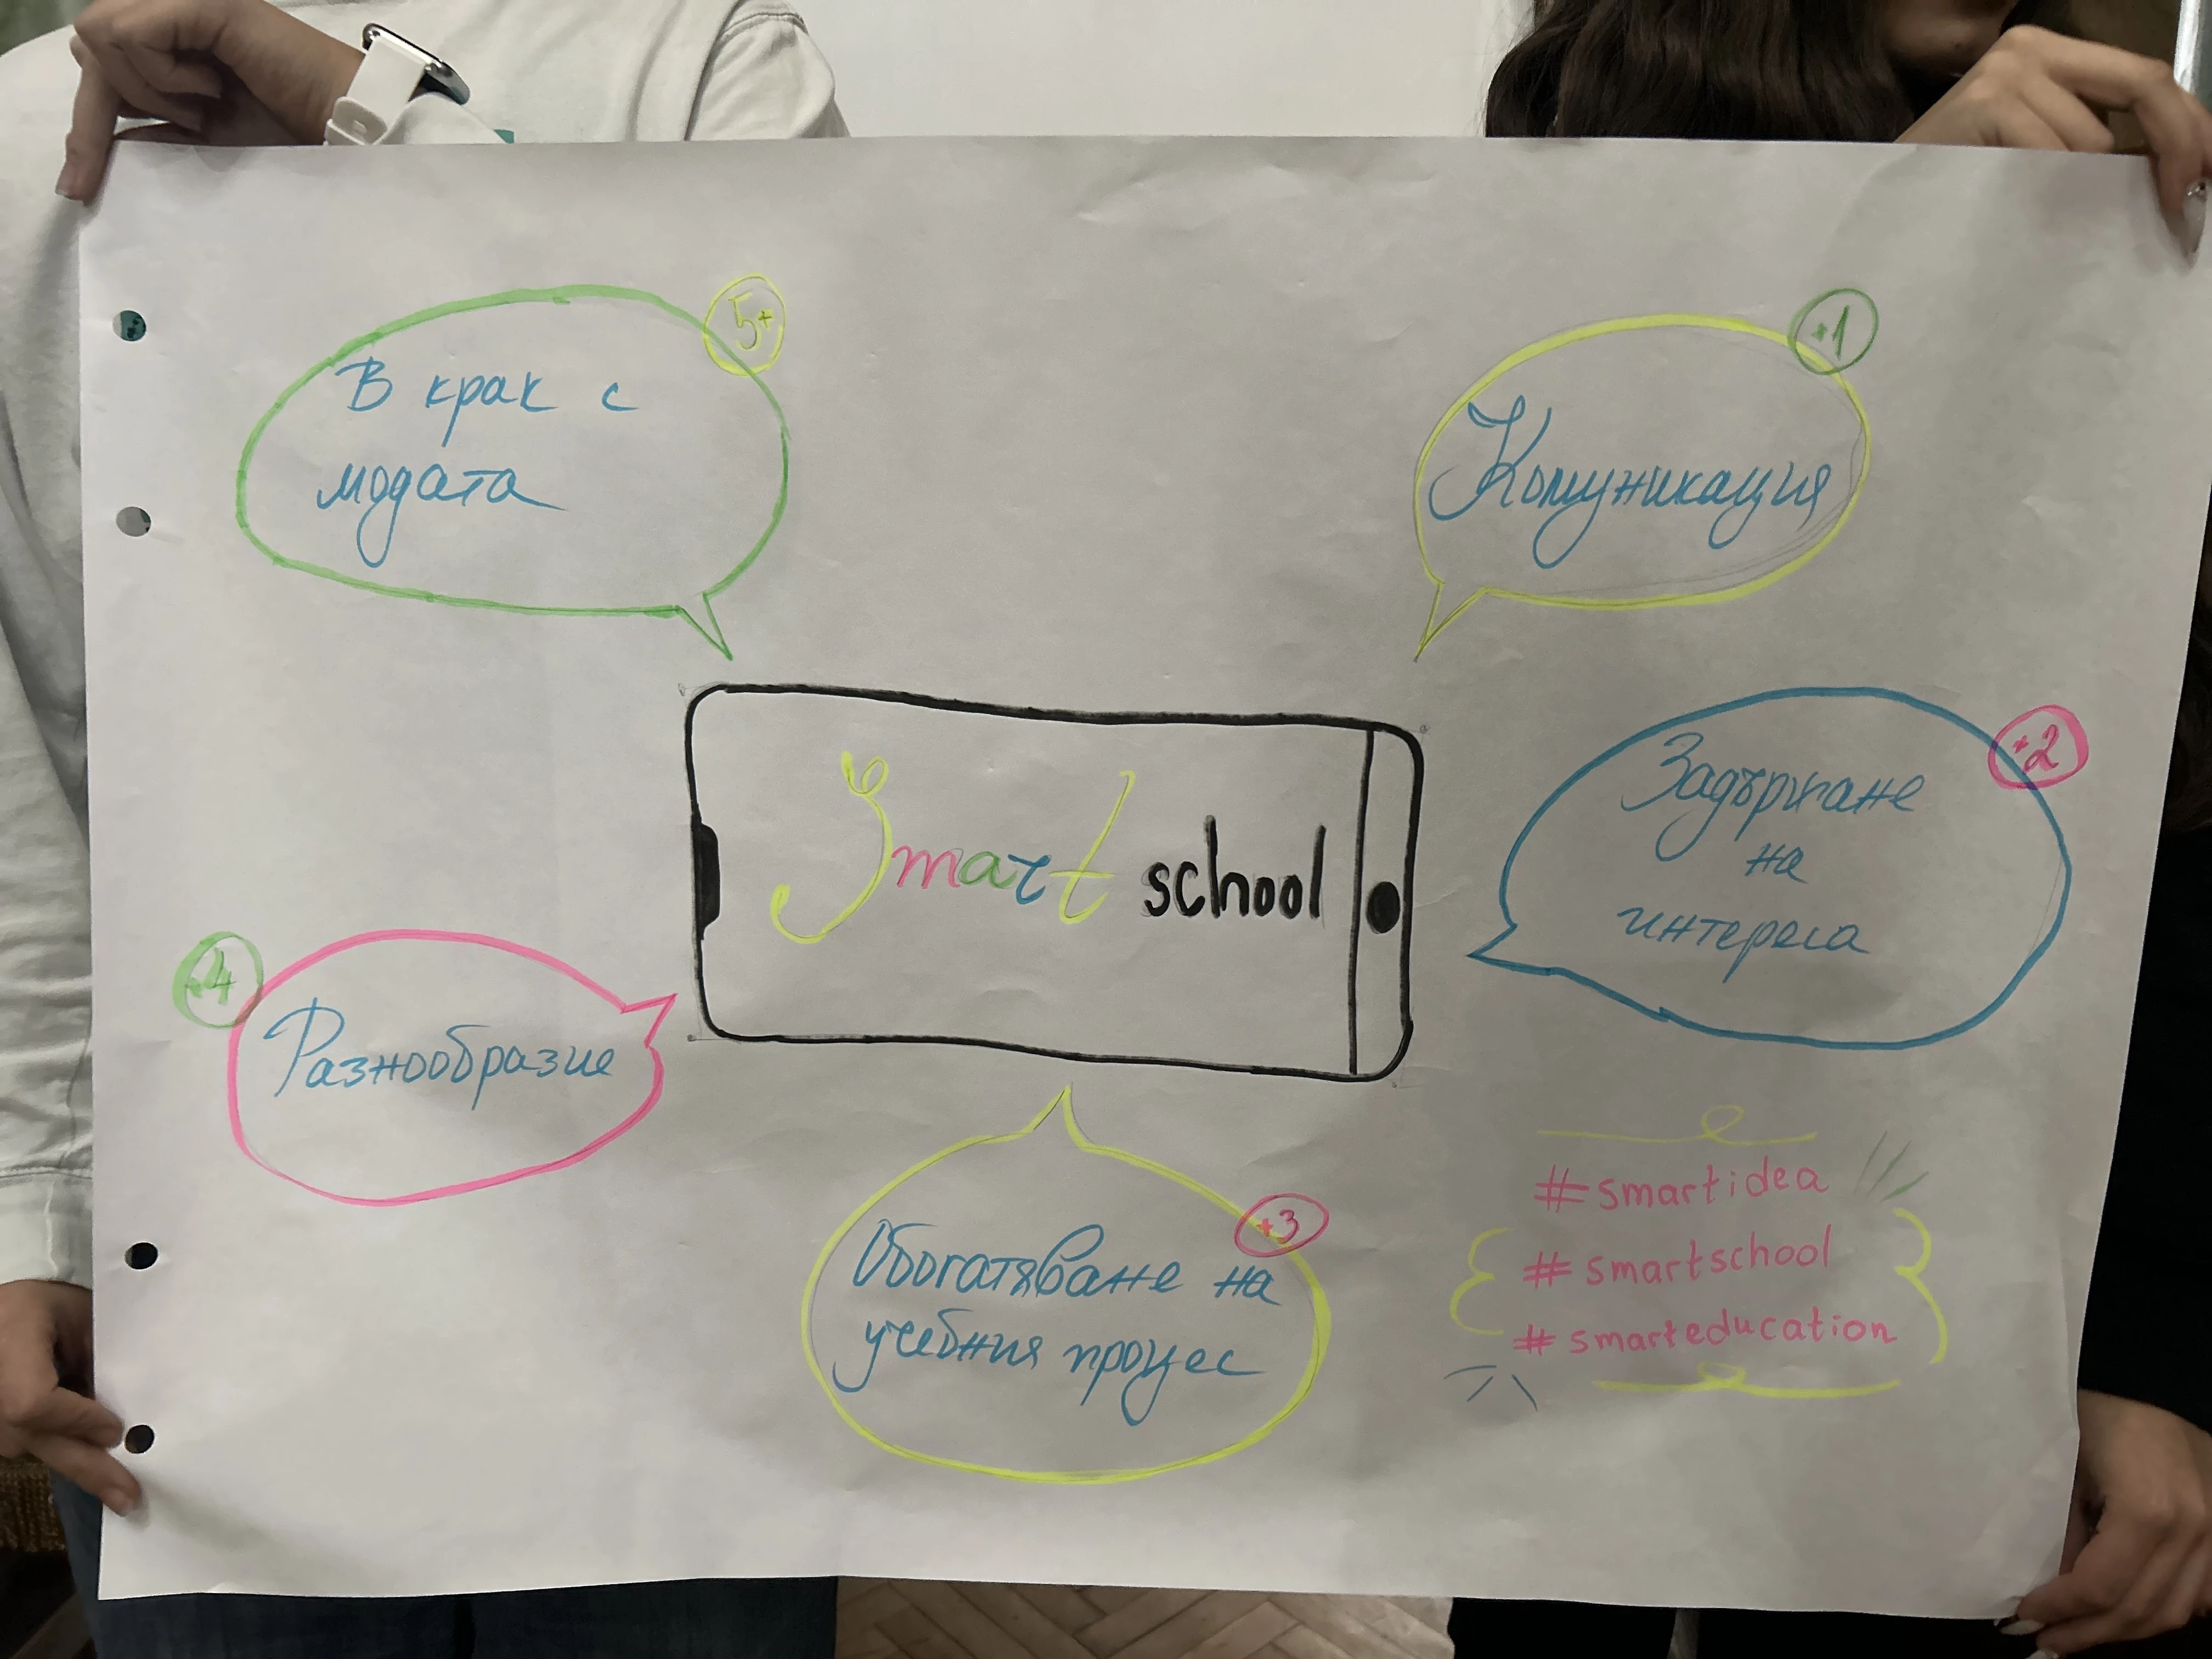 5+
В крак с
модата
+1
Комуникация
Smart school
+2
Задържане
на
интереса
+4
Разнообразие
+3
Обогатяване на
учебния процес
#smartidea
#smartschool
#smarteducation